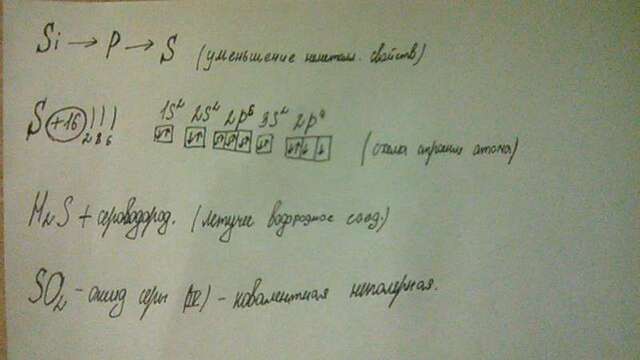 Si → P → S (уменьшение неметалл. свойств)
S +16 ) ) )
2 8 6
1s² 2s² 2p⁶ 3s² 2p⁴
↓↑ ↓↑ ↓↑ ↓↑ ↓↑ ↓↑ ↓↑ ↓ ↓ (схема строения атома)
H₂S + сероводород. (летучее водородное соед.)
SO₂ - оксид серы (IV) - ковалентная неполерная.